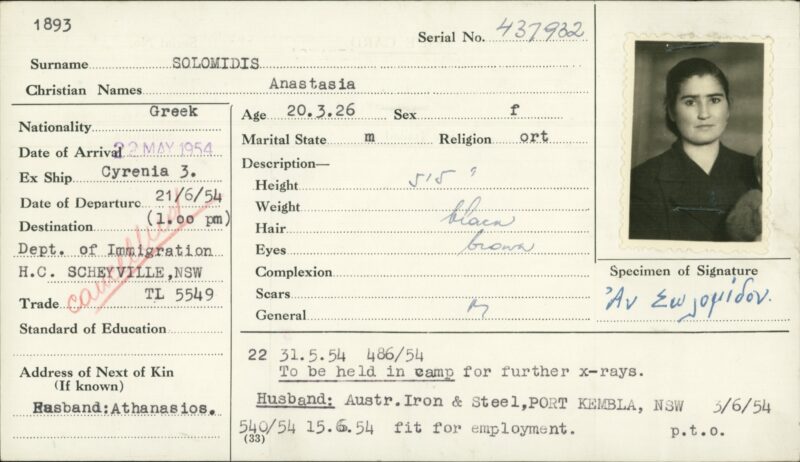 1893
Serial No. 437932
Surname SOLOMIDIS
Christian Names Anastasia
Nationality Greek
Date of Arrival 22 MAY 1954
Ex Ship Cyrenia 3.
Date of Departure 21/6/54
Destination (1.00 pm)
Dept. of Immigration
H.C. SCHEYVILLE,NSW
cancelled
Trade TL 5549
Standard of Education
Address of Next of Kin
(If known)
Husband:Athanasios.
Age 20.3.26 Sex f
Marital State m Religion ort
Description—
Height 5'5"
Weight
Hair black
Eyes brown
Complexion
Scars
General
Specimen of Signature
Ἀν Σωλομίδου.
22 31.5.54 486/54
To be held in camp for further x-rays.
Husband: Austr.Iron & Steel,PORT KEMBLA, NSW 3/6/54
540/54 15.6.54 fit for employment. p.t.o.
(33)